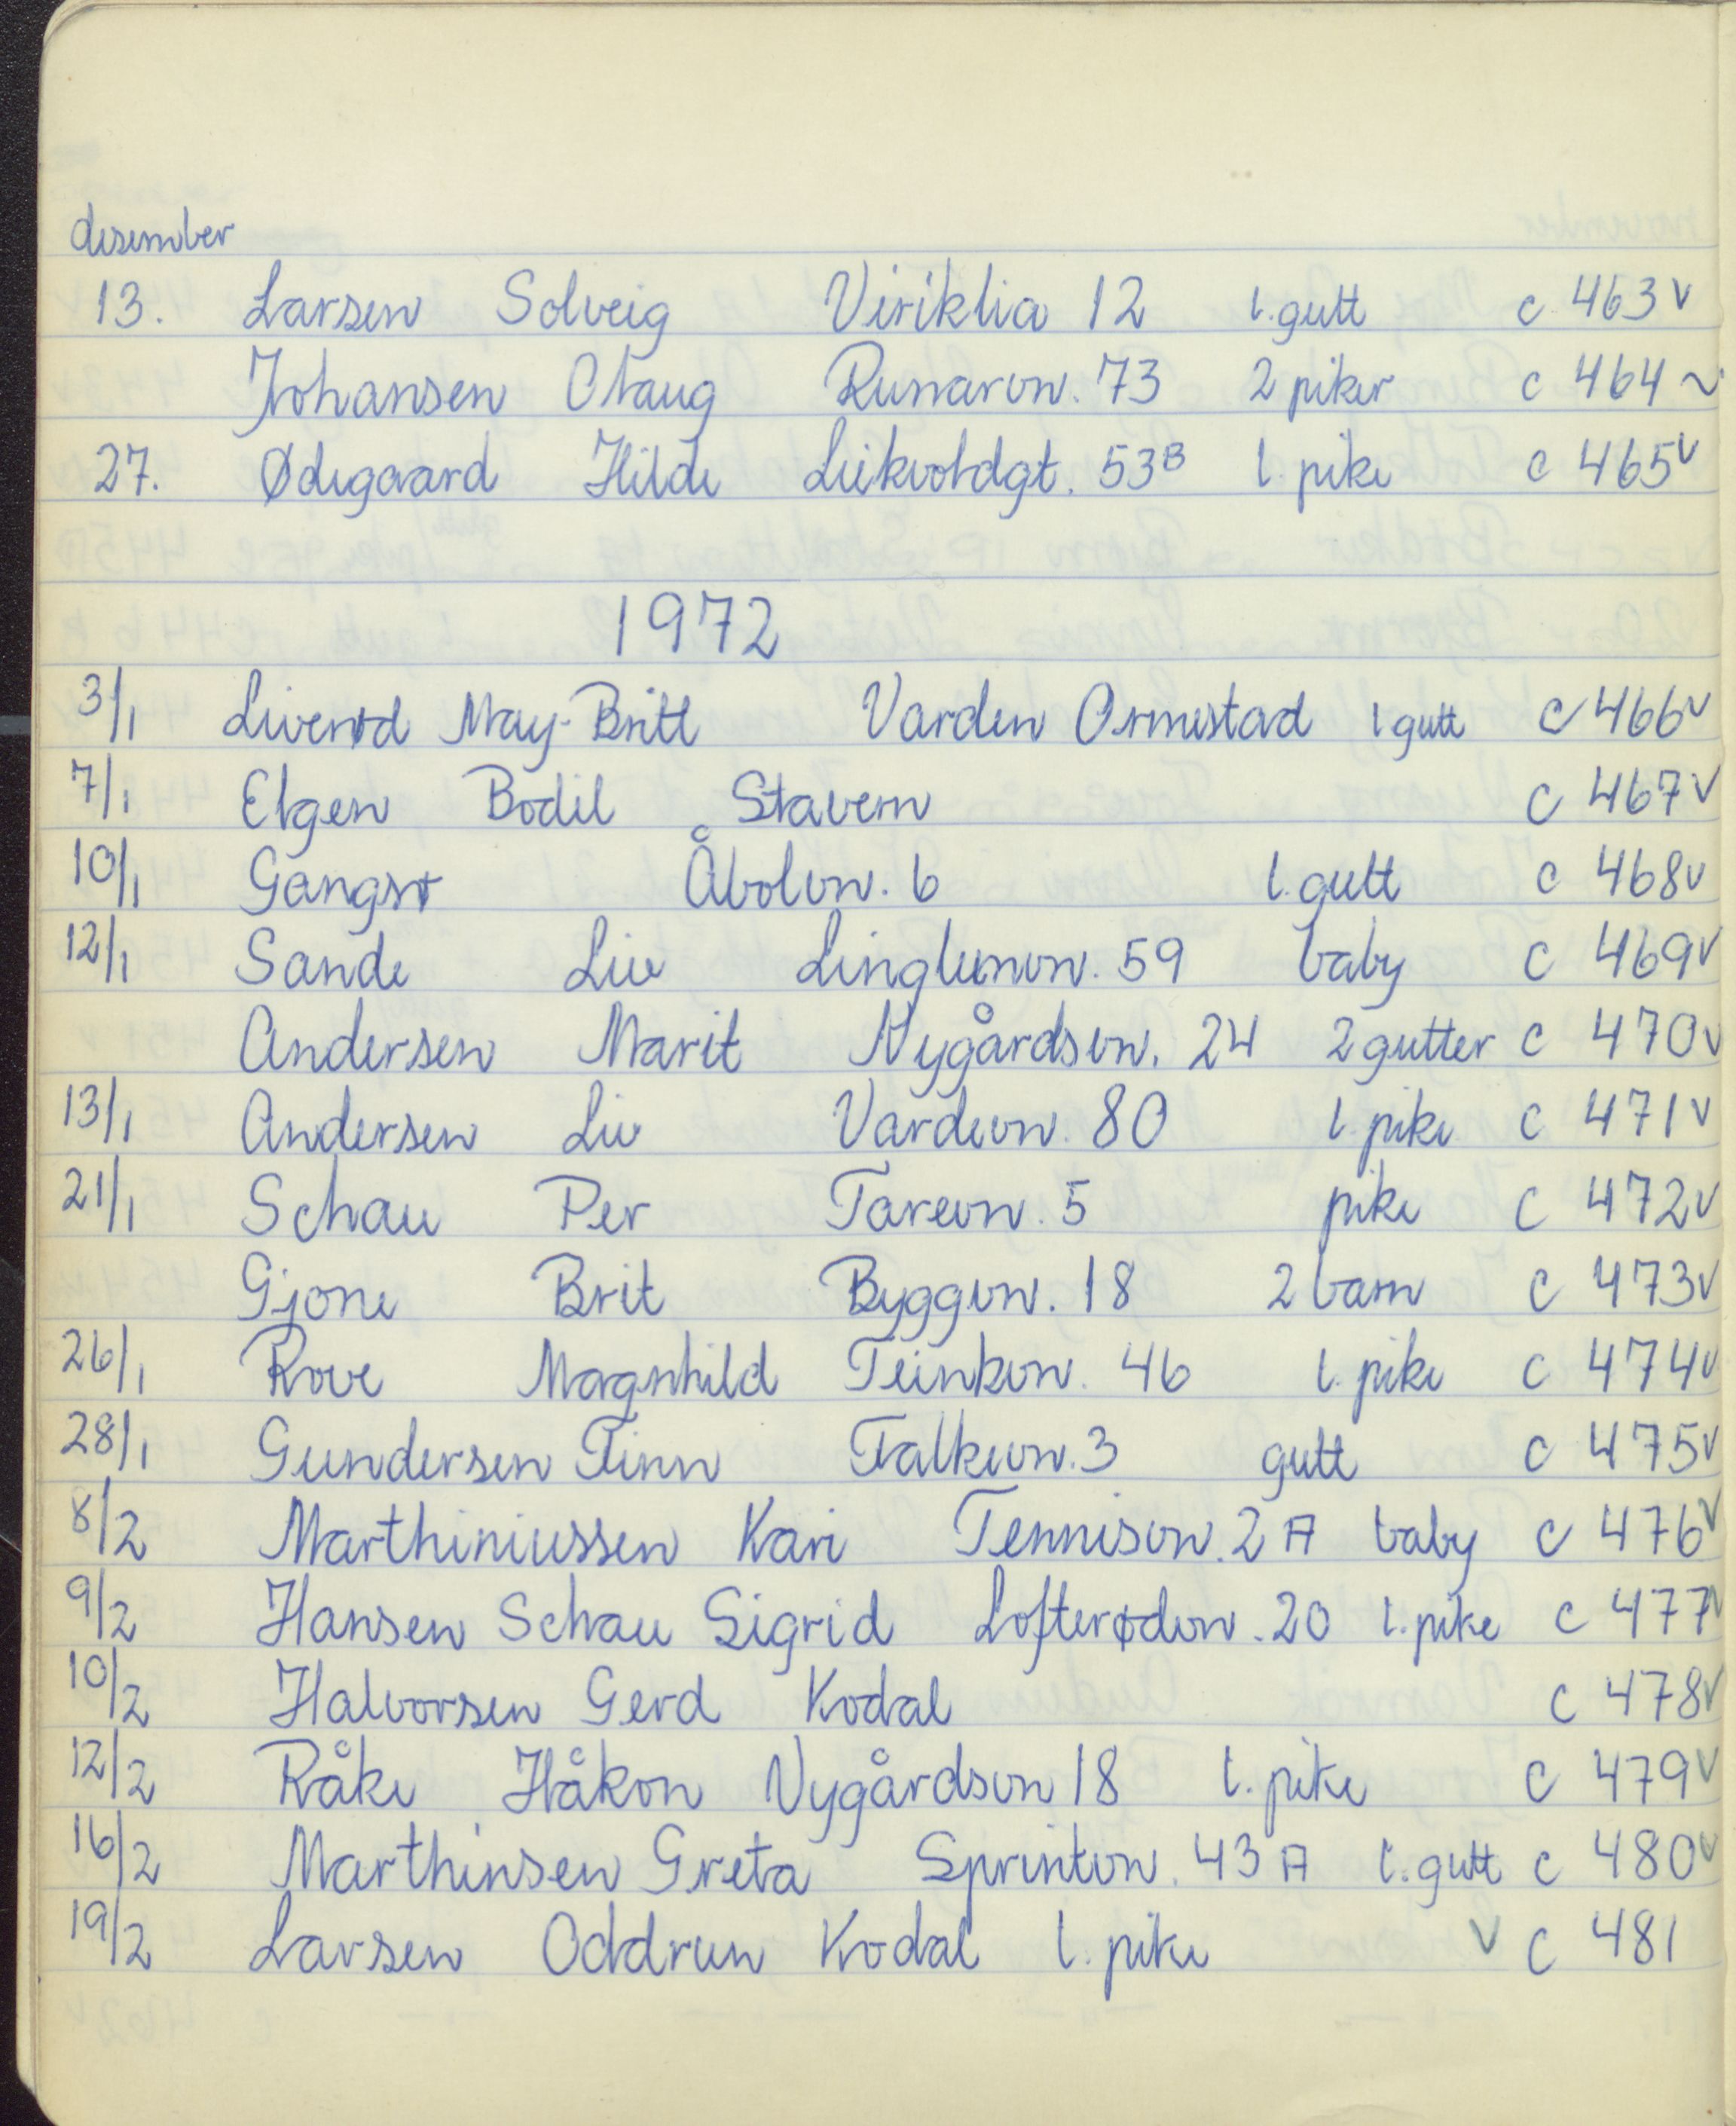 desember
13. Larsen Solveig Veriklia 12 1. gutt c 463 v
Johansen Olaug Runarvn. 73 2 piker c 464 v
27. Ødegaard Hilde Leikvoldgt. 53B 1. pike c 465 v
1972
3/1 Liverød May-Britt Varden Ormestad 1 gutt c 466 v
7/1 Elgen Bodil Stavern c 467 v
10/1 Gangsø Åbolvn. 6 1. gutt c 468 v
12/1 Sande Liv Linglemvn. 59 baby c 469 v
Andersen Marit Nygårdsvn. 24 2 gutter c 470 v
13/1 Andersen Liv Vardevn. 80 1. pike c 471 v
21/1 Schau Per Tarevn. 5 pike c 472 v
Gjone Brit Byggvn. 18 2 barn c 473 v
26/1 Rove Magnhild Teinkvn. 46 1. pike c 474 v
28/1 Gundersen Finn Falkevn. 3 gutt c 475 v
8/2 Marthiniussen Kari Tennisvn. 2 A baby c 476 v
9/2 Hansen Schau Sigrid Lofterødvn. 20 1. pike c 477 v
10/2 Halvorsen Gerd Kodal c 478 v
12/2 Råke Håkon Nygårdsvn 18 1. pike c 479 v
16/2 Marthinsen Greta Sprintvn. 43 A 1. gutt c 480 v
19/2 Larsen Oddrun Kodal 1. pike v c 481